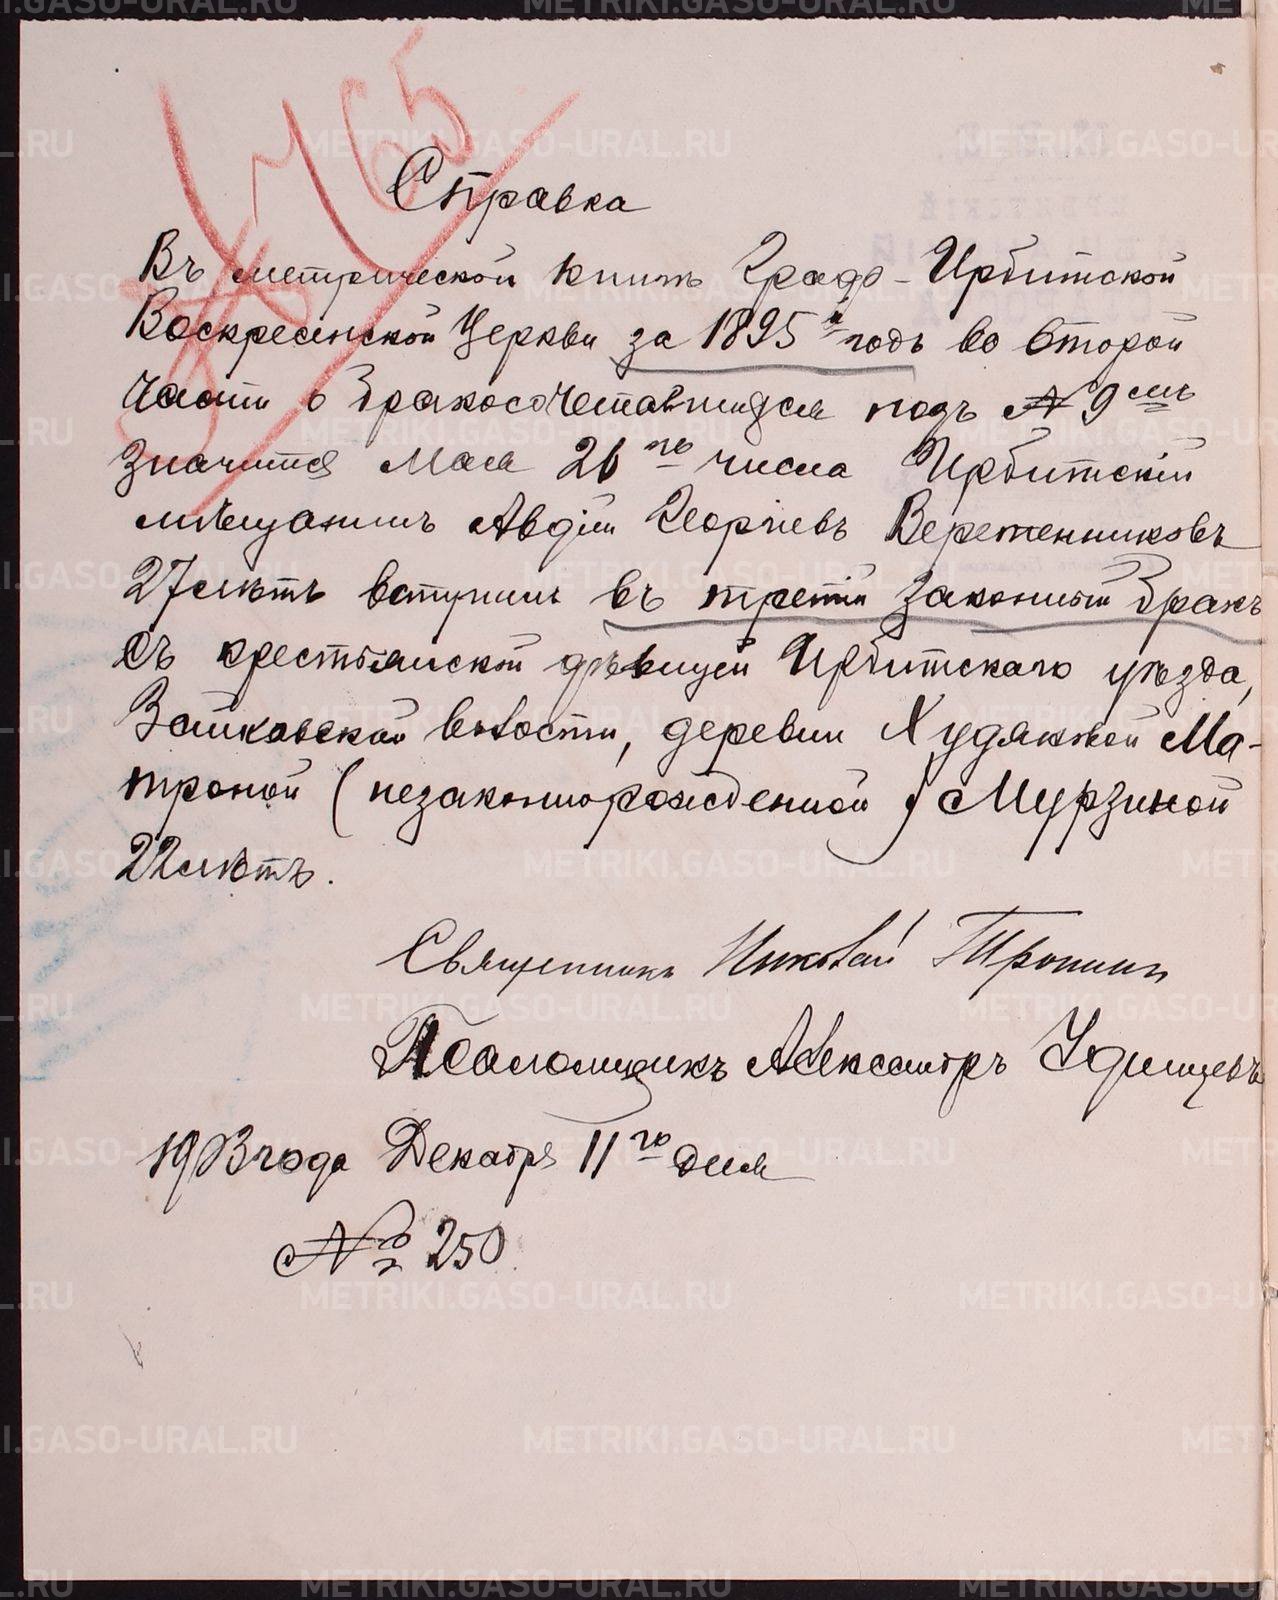 465
Справка
Въ метрической книгѣ Градо-Ирбитской
Воскресенской Церкви за 1895й годъ во второй
части о бракосочетавшихся подъ № 9мъ
значится Мая 26го числа Ирбитскій
мѣщанинъ Авдій Георгіевъ Веретенниковъ
27 лѣтъ вступилъ въ третій законный бракъ
съ крестьянской дѣвицей Ирбитскаго уѣзда,
Зайковской волости, деревни Худяковой Ма-
троной (незаконнорожденной) Мурзиной
22 лѣтъ.
Священникъ Николай Тронинъ
Псаломщикъ Александръ Удинцевъ
1913 года Декабря 11го дня
№ 250